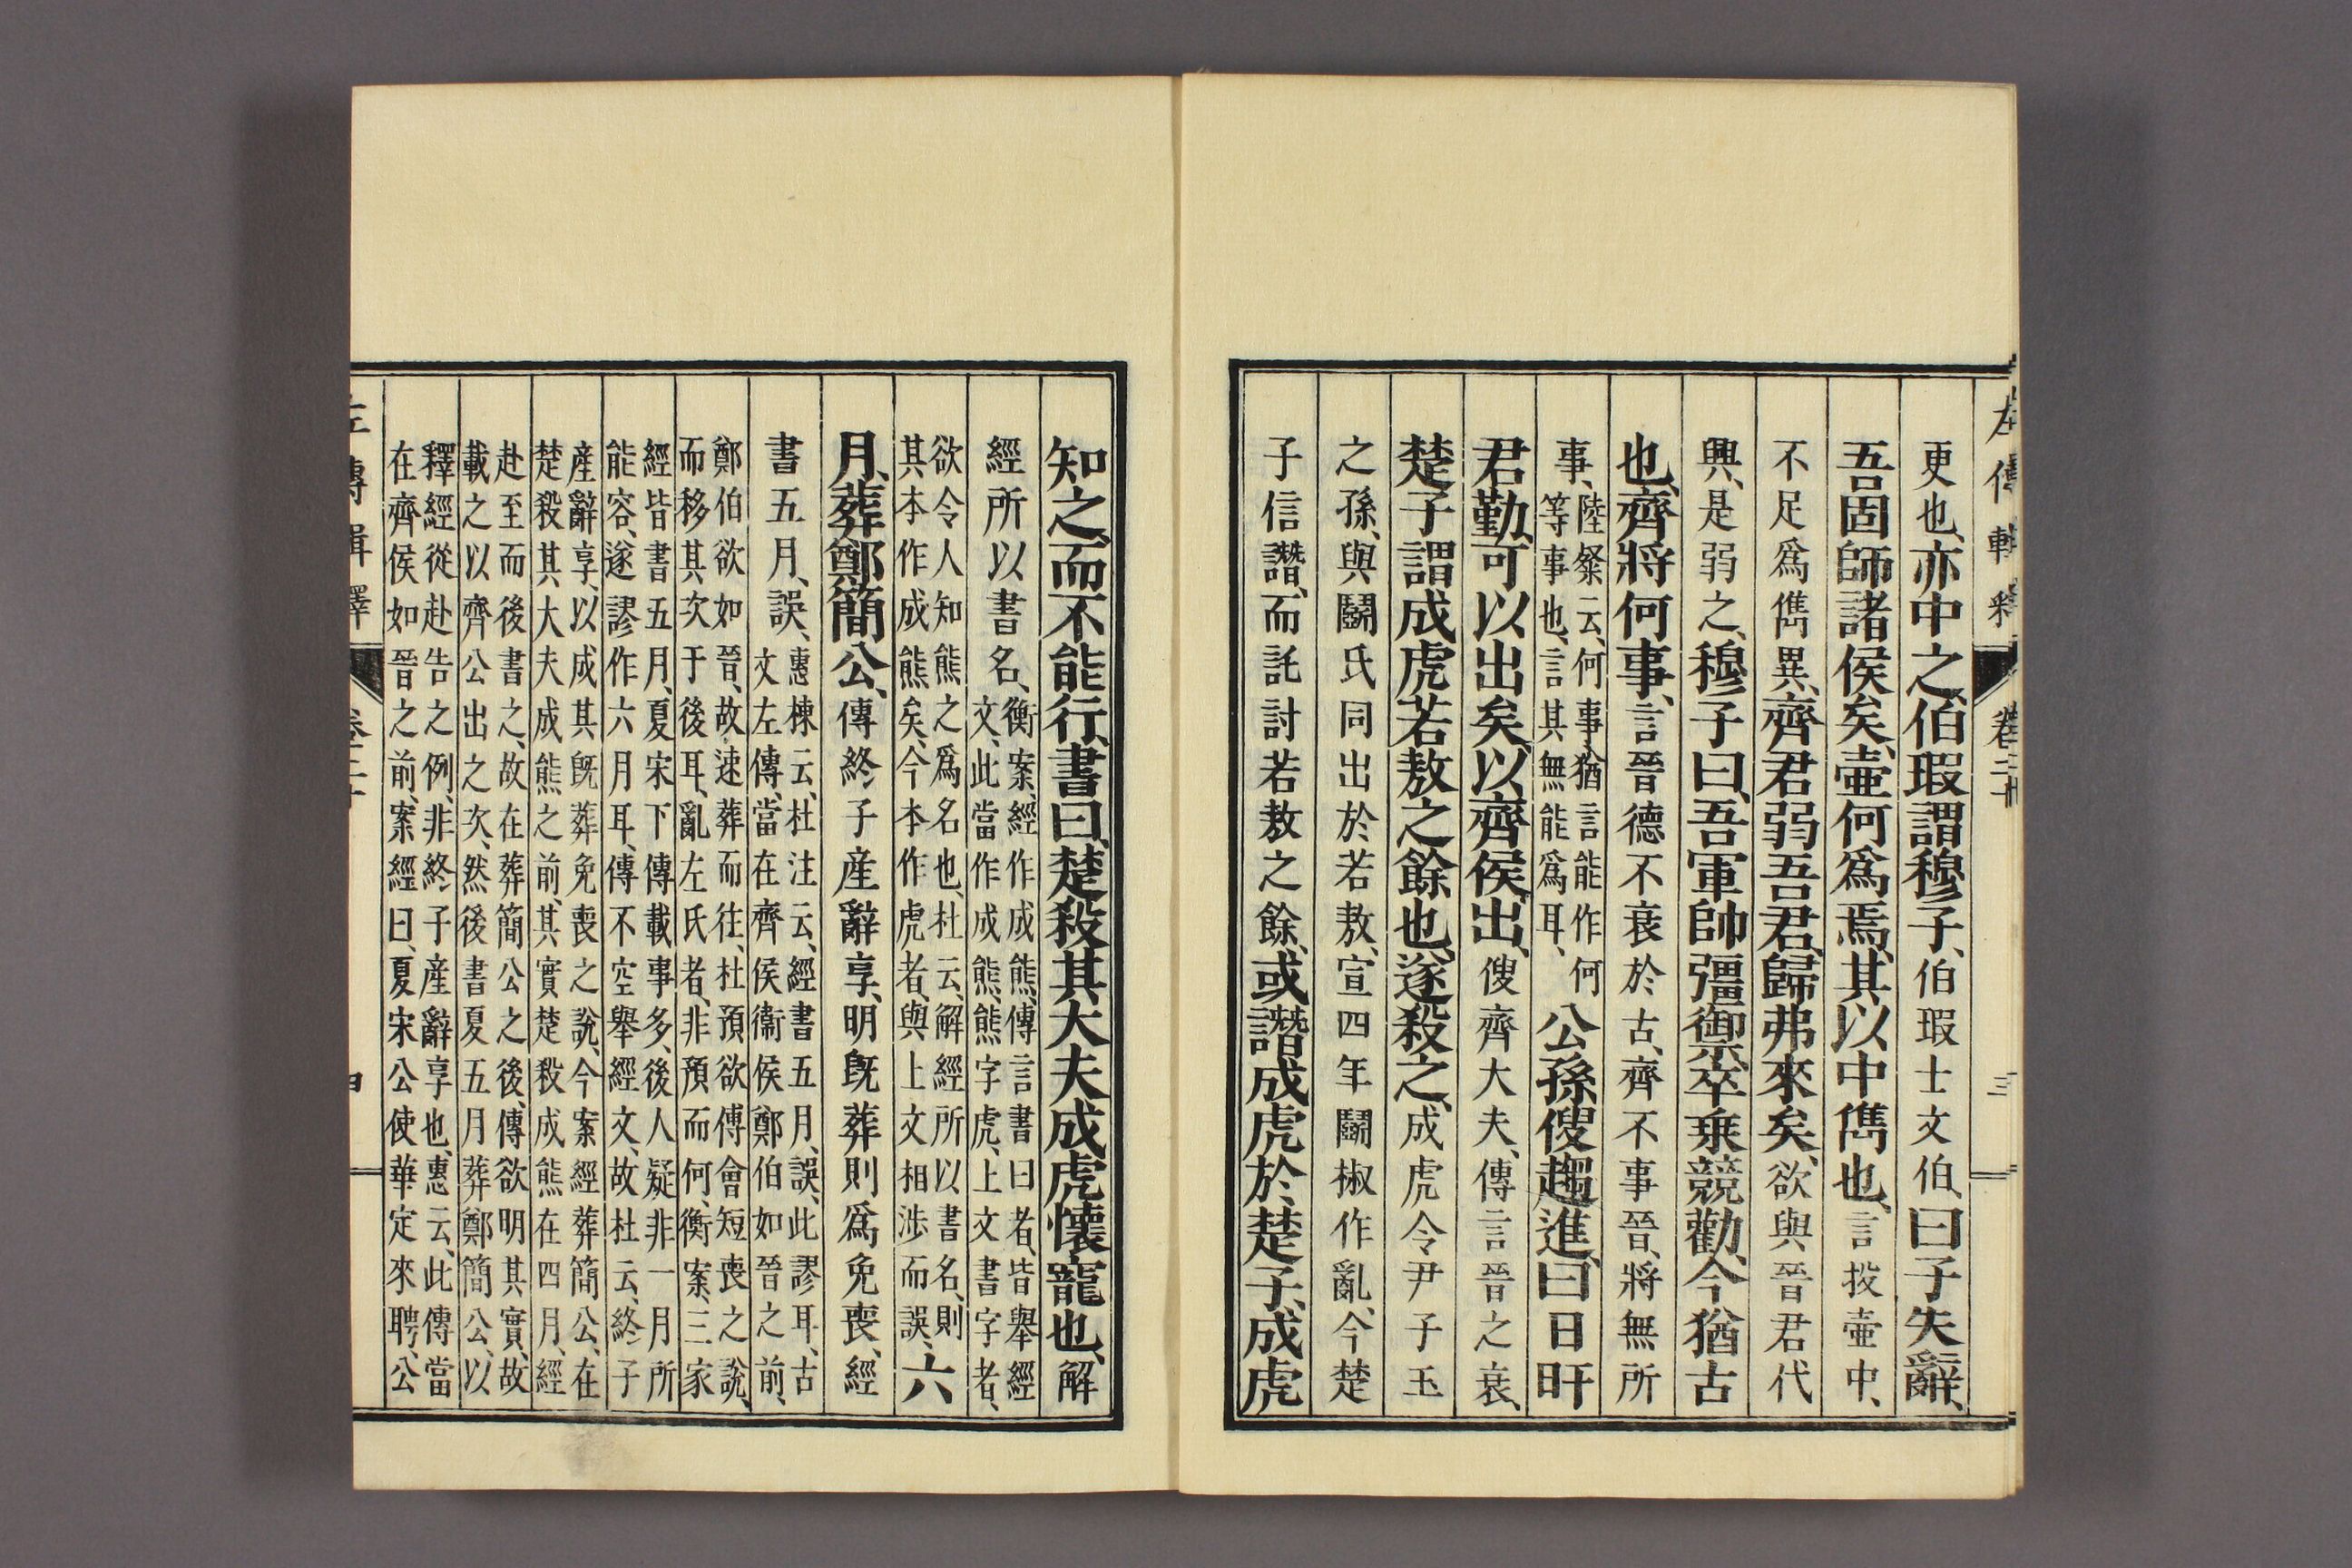 左傳輯釋 卷二十 三
更也、亦中之、伯瑕謂穆子、伯瑕士文伯、曰子失辭、
吾固師諸侯矣、壷何爲焉、其以中儁也、言投壷中、
不足爲儁異、齊君弱吾君、歸弗來矣、欲與晉君代
興、是弱之、穆子曰、吾軍帥彊禦、卒乗競勸、今猶古
也、齊將何事、言晉德不衰於古、齊不事晉、將無所
事、陸粲云、何事、猶言能作何
等事也、言其無能爲耳、公孫傁趨進、曰日旰
君勤、可以出矣、以齊侯出、傁齊大夫、傳言晉之衰、
楚子謂成虎若敖之餘也、遂殺之、成虎令尹子玉
之孫、與鬭氏同出於若敖、宣四年鬭椒作亂、今楚
子信譖、而託討若敖之餘、或譖成虎於楚子、成虎
知之、而不能行、書曰、楚殺其大夫成虎懷寵也、解
經所以書名、衡案、經作成熊、傳言書曰者、皆舉經
文、此當作成熊、熊字虎、上文書字者、
欲令人知熊之爲名也、杜云、解經所以書名、則
其本作成熊矣、今本作虎者、與上文相渉而誤、六
月、葬鄭簡公、傳終子産辭享、明旣葬則爲免喪、經
書五月、誤、惠棟云、杜注云、經書五月、誤、此謬耳、古
文左傳、當在齊侯衞侯鄭伯如晉之前、
鄭伯欲如晉、故速葬而往、杜預欲傅會短喪之說、
而移其次于後耳、亂左氏者、非預而何、衡案、三家
經皆書五月、夏宋下傳載事多、後人疑非一月所
能容、遂謬作六月耳、傳不空舉經文、故杜云、終子
産辭享、以成其旣葬免喪之説、今案經葬簡公、在
楚殺其大夫成熊之前、其實楚殺成熊在四月、經
赴至而後書之、故在葬簡公之後、傳欲明其實、故
載之以齊公出之次、然後書夏五月葬鄭簡公、以
釋經從赴告之例、非終子産辭享也、惠云、此傳當
在齊侯如晉之前、案經曰、夏宋公使華定來聘、公
左傳輯釋 卷二十 四